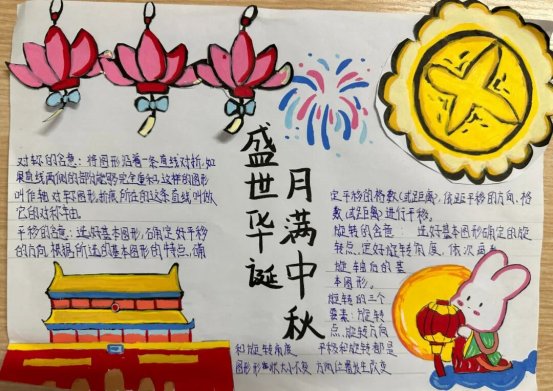 盛世华诞
月满中秋
对称的含意：将图形沿着一条直线对折，如
果直线两侧的部分能够完全重合，这样的图形
叫作轴对称图形，折痕所在的这条直线叫做
它的对称轴。
平移的含意：选好基本图形，确定好平移
的方向 根据所选的基本图形的特点，确
定平移的格数(或距离)，依距平移的方向、格
数(或距离)进行平移。
旋转的含意： 选好基本图形确定的旋
转点、定好旋转角度，依次
旋轴后的基
本图形。
旋转的三个
要素：旋转
点、旋转方向
和旋转角度
平移和旋转都是
图形形状大小不变 方向位置发生改变